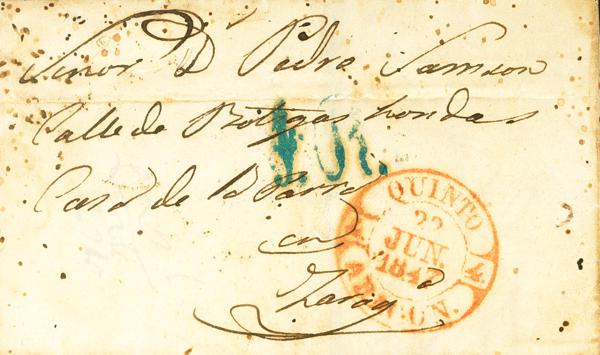 Señor D Pedro Samson
Calle de Botigas hondas
Casa de
en
Zarag
QUINTO
22
JUN.
1847
ARAGON.